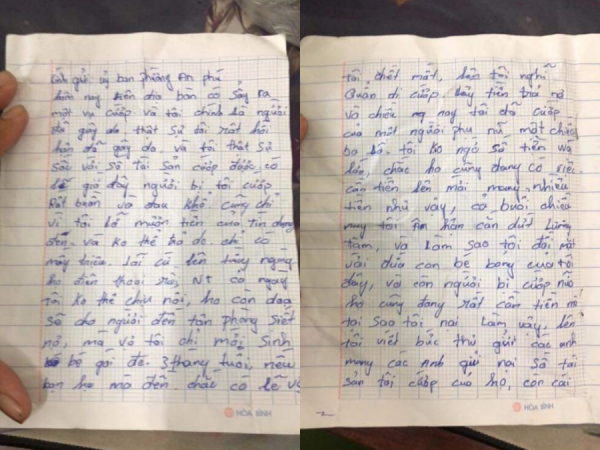 Kính gửi uỷ ban phường An phú
hiện nay trên địa bàn có sảy ra
một vụ cướp và tôi chính là người
đã gây ra. thật sự tôi rất hối
hận đã gây ra. và tôi thật sự
sốc với số tài sản cướp được có
lẽ giờ đây người bị tôi cướp.
Rất buồn và đau khổ cũng chỉ
vì tôi lỡ mượn tiền của tín dụng
đen. và ko thể trả dc. chỉ có
mấy triệu. lãi cứ lên từng ngày
họ điện thoại rồi, NT cả ngày
tôi ko thể chịu nổi, họ còn dọa
sẽ cho người đến tận phòng siết
nợ, mà vợ tôi chỉ mới sinh
bé gái đc 3 tháng tuổi, nếu
bọn họ mà đến chắc có lẽ vợ
HÒA BÌNH
tôi, chết mất, lên tôi nghĩ
Quẩn đi cướp. lấy tiền trả nợ
và chiều nay tôi đã cướp
của một người phụ nữ một chiếc
ba lô. tôi ko ngờ số tiền quá
lớn, chắc họ cũng đang có việc.
cần tiền lên mới mang nhiều
tiền như vậy, cả buổi chiều
nay tôi ân hận cắn dứt lương
tâm, và làm sao tôi đối mặt
với đứa con bé bỏng của tôi
đây, và còn người bị cướp nữa
họ cũng đang rất cần tiền mà
tại sao tôi nại làm vậy, lên
tôi viết bức thư gửi các anh
mong các anh gửi nại số tài
sản tôi cướp của họ, còn cái
HÒA BÌNH